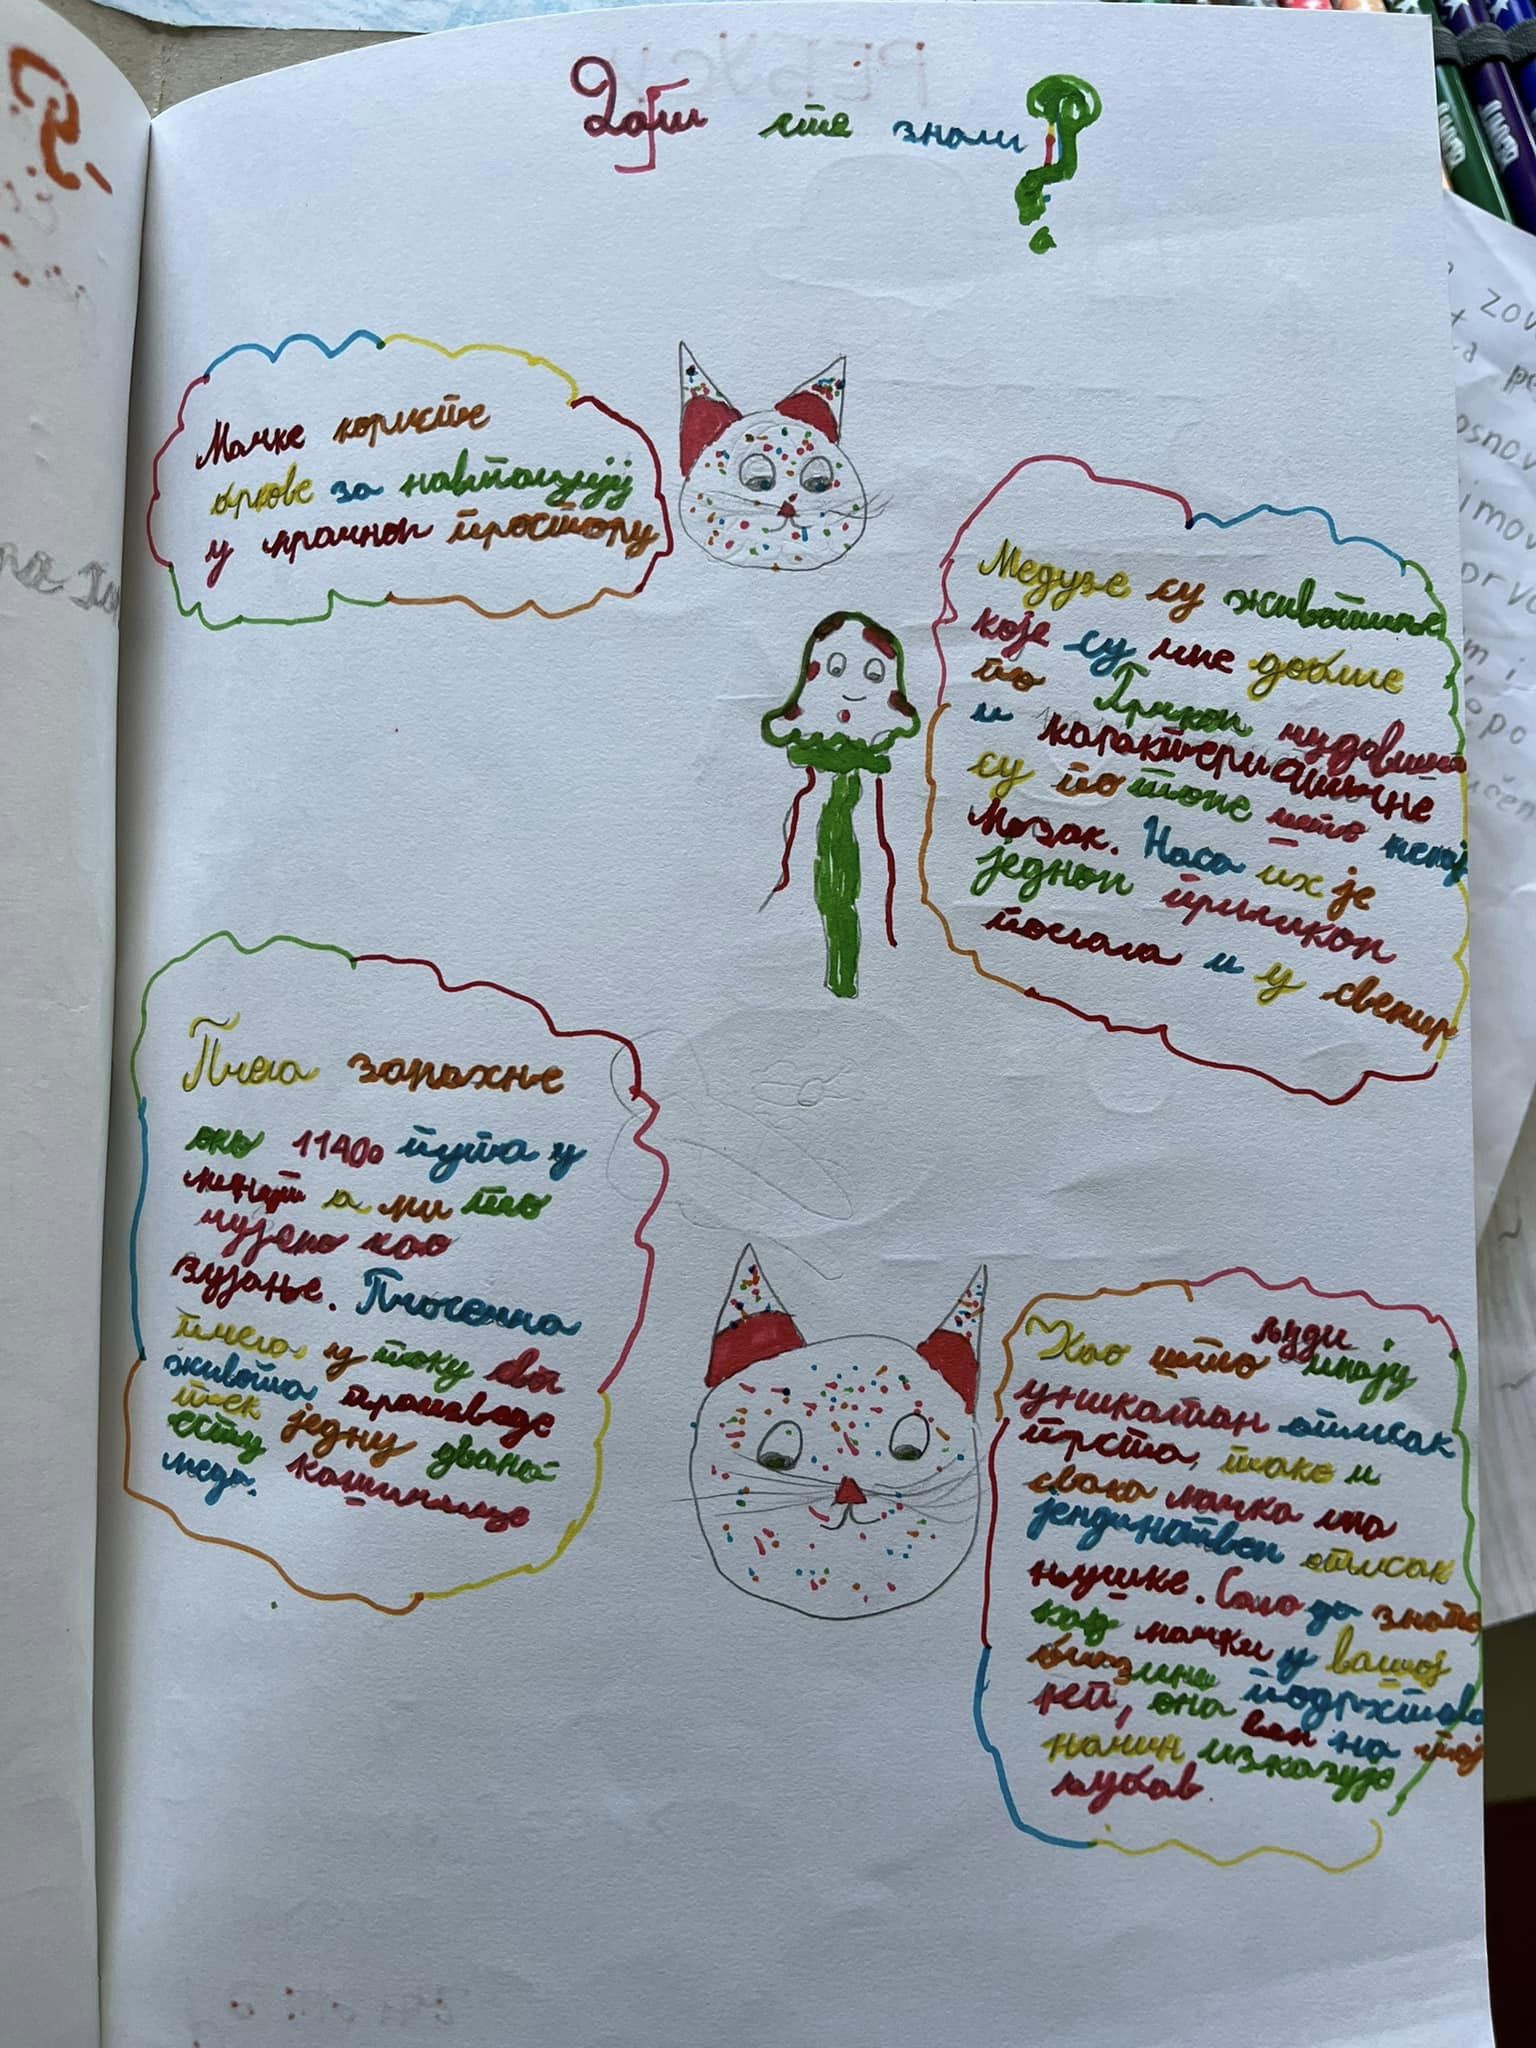 Да ли сте знали?
Мачке користе
бркове за навигацију
у мрачном простору
Медузе су животиње
које су име добиле
по Грчком чудовишту
и карактеристичне
су по томе што немају
мозак. Наса их је
једном приликом
послала и у свемир
Пчела замахне
око 11400 пута у
минути а ми то
чујемо као
зујање. Просечна
пчела у току свог
живота произведе
тек једну дванае
есту кашичице
меда.
Као што људи имају
уникатан отисак
прста, тако и
свака мачка има
јединствен отисак
њушке. Само да знате
кад мачки у вашој
близини подрхтава
реп, она вам на тај
начин изказује
љубав.